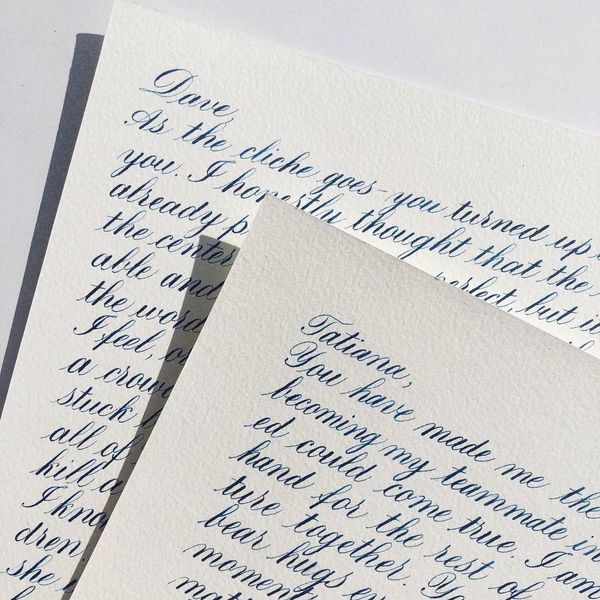 Dave,
As the cliche goes - you turned up
you. I honestly thought that the
already perfect, but
the center
able and
the word
I feel,
a crow
stuck
all of
kill a
I kno
dren
she
Tatiana,
You have made me the
becoming my teammate in
ed could come true. I am
hand for the rest of
ture together. Yo
bear hugs
moment